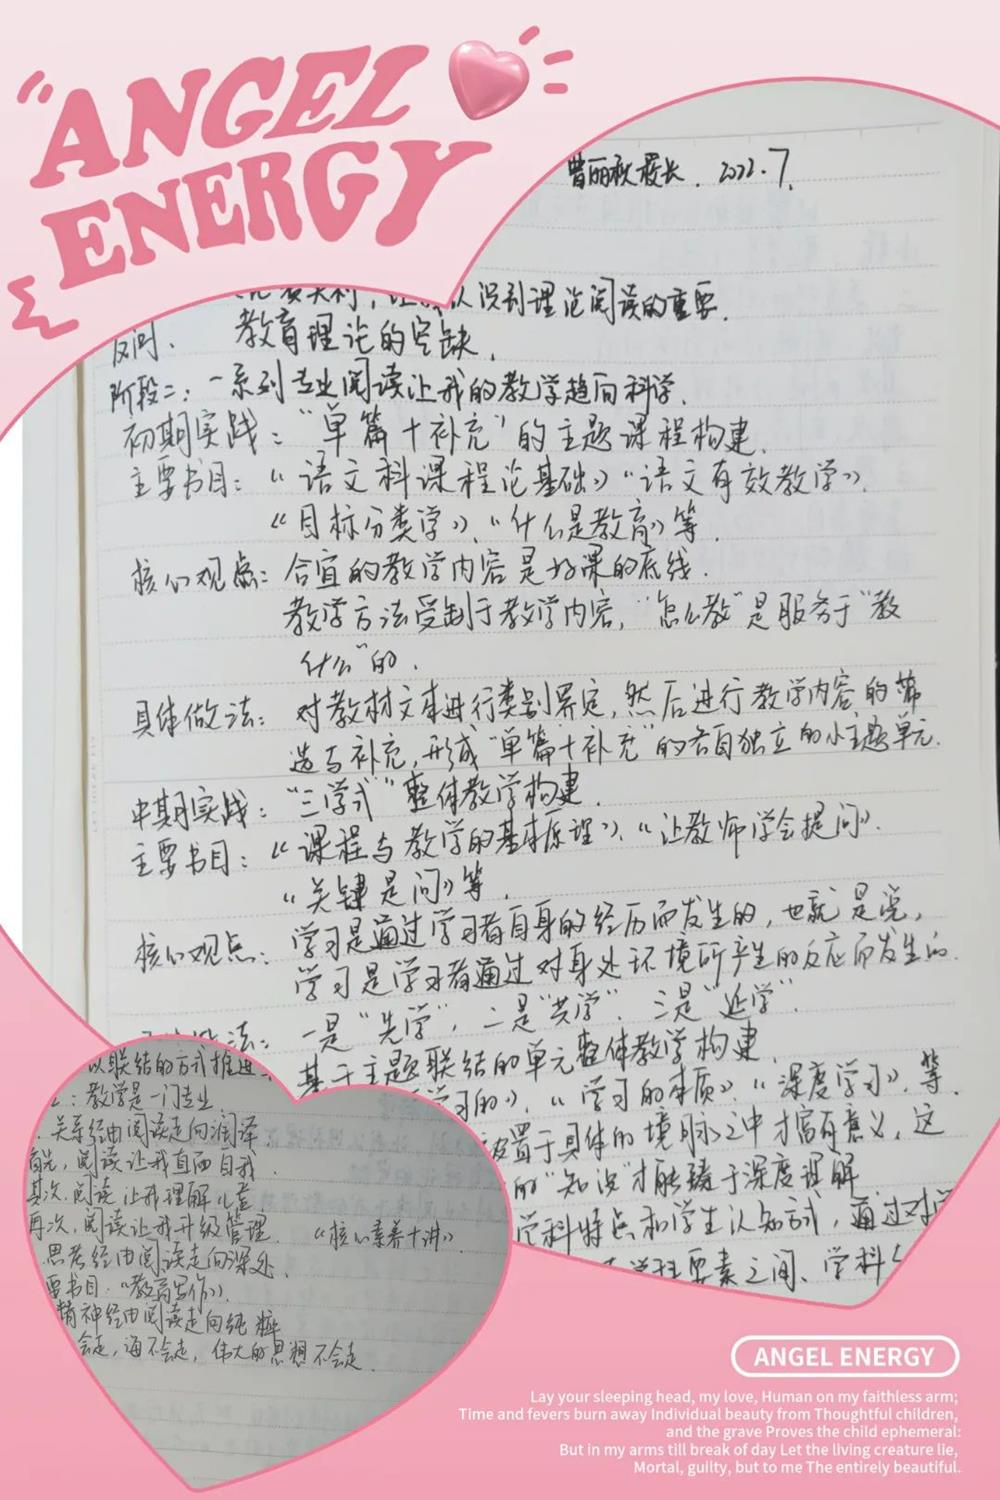 ANGEL
ENERGY
曾丽秋校长. 2022.7.
认识到理论阅读的重要.
反问. 教育理论的空缺.
阶段二:一系列专业阅读让我的教学趋向科学.
初期实践:“单篇+补充”的主题课程构建.
主要书目:《语文科课程论基础》《语文有效教学》、
《目标分类学》、《什么是教育》等.
核心观点:合宜的教学内容是好课的底线.
教学方法受制于教学内容,“怎么教”是服务于“教
什么”的.
具体做法:对教材文本进行类别界定,然后进行教学内容的筛
选与补充,形成“单篇+补充”的各自独立的小主题单元.
中期实践:“三学式”整体教学构建.
主要书目:《课程与教学的基本原理》、《让教师学会提问》.
《关键是问》等.
核心观点:学习是通过学习者自身的经历而发生的,也就是说,
学习是学习者通过对身处环境所产生的反应而发生的.
法:一是“先学”,二是“共学”.三是“延学”.
基于主题联结的单元整体教学构建.
学习的》、《学习的本质》、《深度学习》.等.
置于具体的境脉之中才富有意义,这
的“知识”才能臻于深度理解
学科特点和学生认知方式,通过对学
要素之间、学科
以联结的方式推进
:教学是一门专业
.关系经由阅读走向润泽.
首先,阅读让我直面自我.
其次.阅读让我理解儿童
再次,阅读让我升级管理. 《核心素养十讲》.
思考经由阅读走向深处.
要书目:《教育写作》.
精神经由阅读走向纯粹
会走,海不会走,伟大的思想不会走.
ANGEL ENERGY
Lay your sleeping head, my love, Human on my faithless arm;
Time and fevers burn away Individual beauty from Thoughtful children,
and the grave Proves the child ephemeral:
But in my arms till break of day Let the living creature lie,
Mortal, guilty, but to me The entirely beautiful.